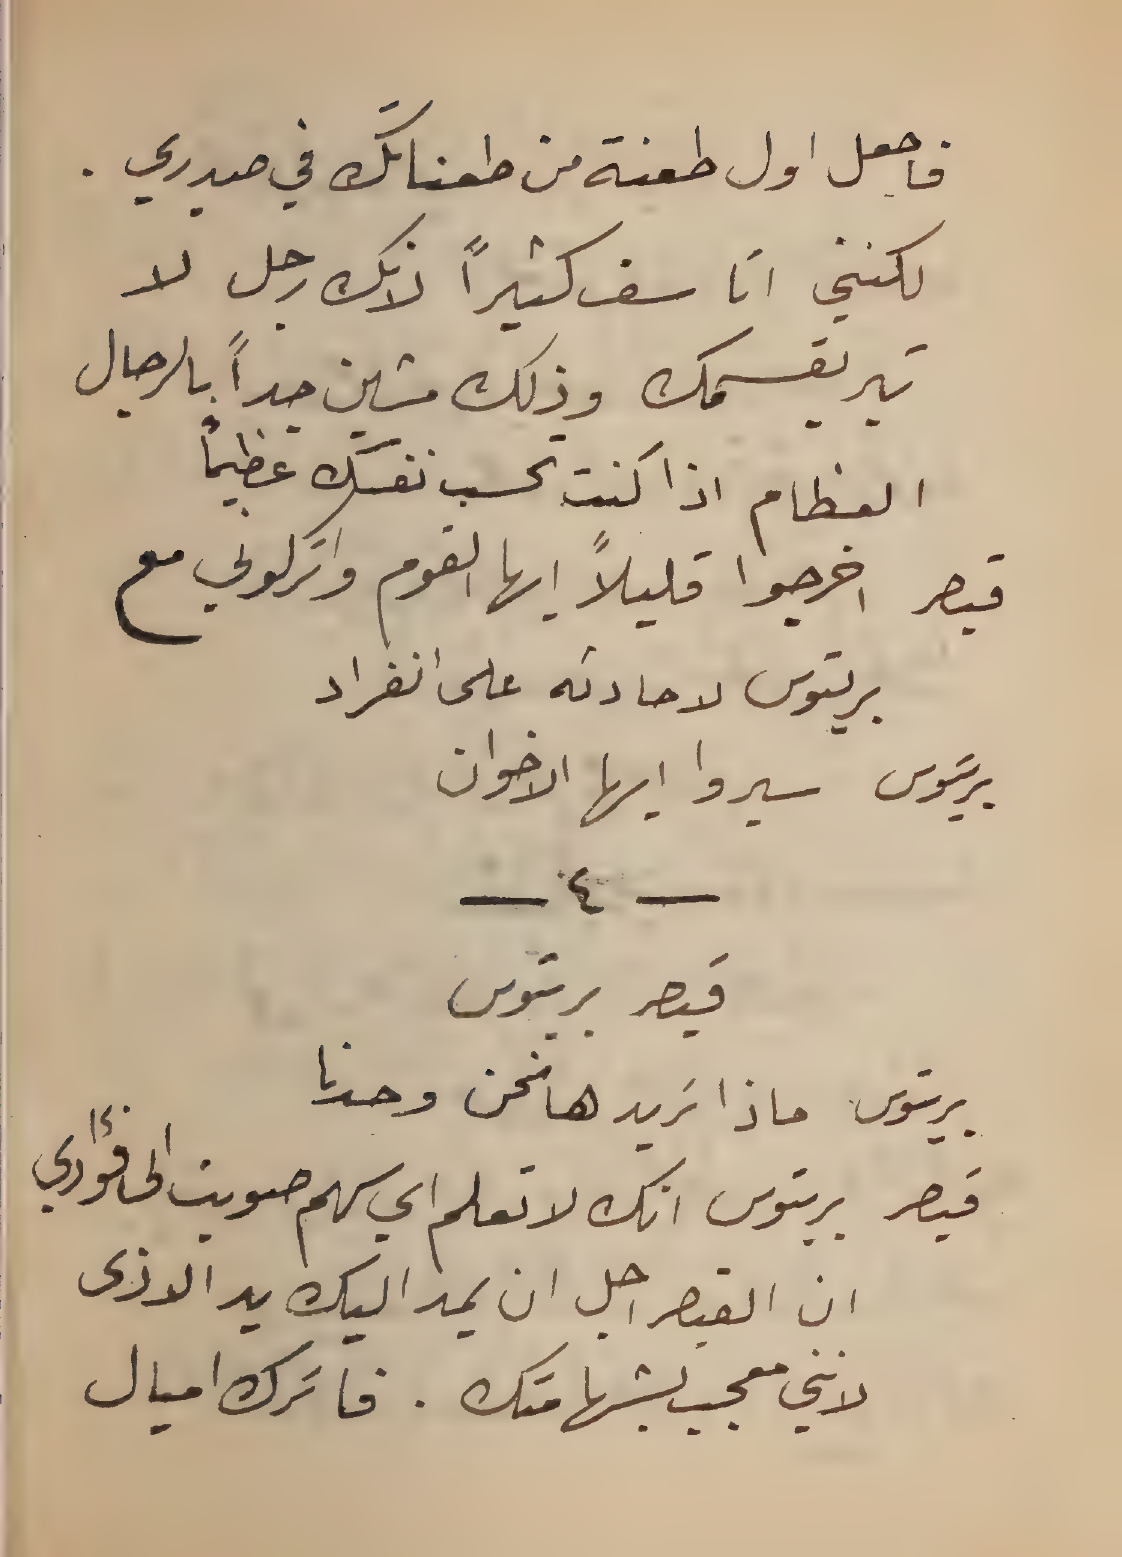 فاجعل اول طعنة من طعناتك في صدري .
لكنني اتا سف كثيراً لانك رجل لا
تبر بقسمك وذلك مشين جداً بالرجال
العظام اذا كنت تحسب نفسك عظيماً
قيصر اخرجوا قليلاً ايها القوم واتركوني مع
بريتوس لاحادثه على انفراد
بريتوس سيروا ايها الاخوان
— ٤ —
قيصر بريتوس
بريتوس ماذا تريد ها نحن وحدنا
قيصر بريتوس انك لا تعلم اي سهم صوبت الى فؤادي
ان القيصر اجل ان يمد اليك يد الاذى
لانني معجب بشهامتك . فاترك اميال